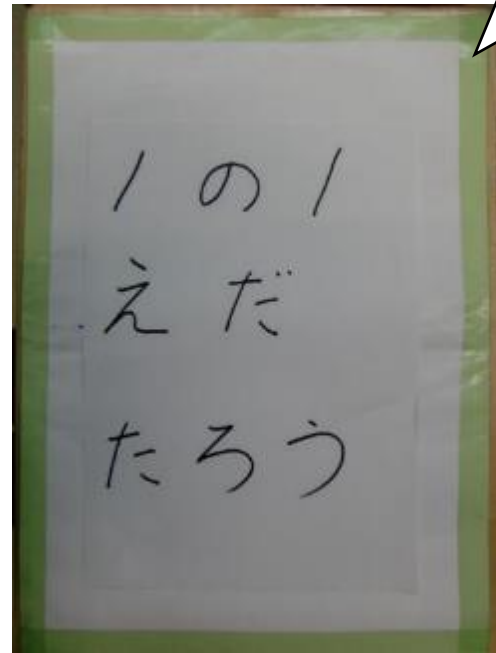 1の1
えだ
たろう